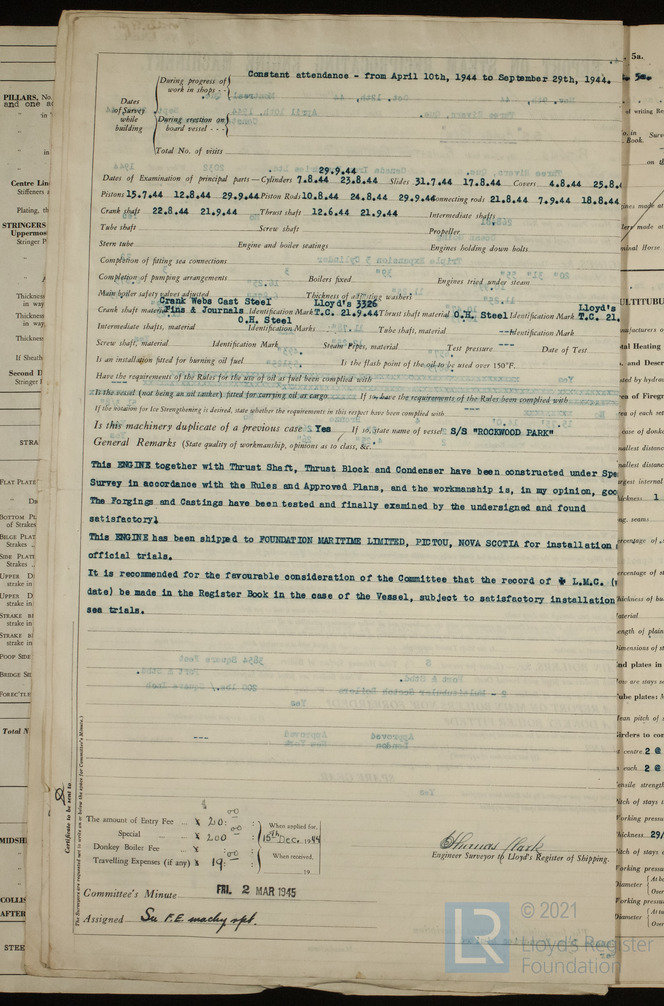 During progress of
work in shops - -
Constant attendance - from April 10th, 1944 to September 29th, 1944.
Dates
of Survey
while
building
During erection on
board vessel - - -
Total No. of visits
29.9.44
Dates of Examination of principal parts—Cylinders 7.8.44 23.8.44 Slides 31.7.44 17.8.44 Covers 4.8.44 25.8.4
Pistons 15.7.44 12.8.44 29.9.44 Piston Rods 10.8.44 24.8.44 29.9.44 Connecting rods 21.8.44 7.9.44 18.8.44
Crank shaft 22.8.44 21.9.44 Thrust shaft 12.6.44 21.9.44 Intermediate shafts
Tube shaft Screw shaft Propeller
Stern tube Engine and boiler seatings Engines holding down bolts
Completion of fitting sea connections
Completion of pumping arrangements Boilers fixed Engines tried under steam
Main boiler safety valves adjusted Thickness of adjusting washers
Crank Webs Cast Steel Lloyd's 3326 Lloyd's
Crank shaft material Pins & Journals Identification Mark T.C. 21.9.44 Thrust shaft material O.H. Steel Identification Mark T.C. 21.
O.H. Steel
Intermediate shafts, material Identification Marks Tube shaft, material --- Identification Mark
Screw shaft, material Identification Mark Steam Pipes, material Test pressure --- Date of Test
Is an installation fitted for burning oil fuel Is the flash point of the oil to be used over 150°F.
Have the requirements of the Rules for the use of oil as fuel been complied with
Is the vessel (not being an oil tanker) fitted for carrying oil as cargo If so, have the requirements of the Rules been complied with
If the notation for Ice Strengthening is desired, state whether the requirements in this respect have been complied with ---
Is this machinery duplicate of a previous case Yes If so, state name of vessel S/S "ROCKWOOD PARK"
General Remarks (State quality of workmanship, opinions as to class, &c.
This ENGINE together with Thrust Shaft, Thrust Block and Condenser have been constructed under Spe
Survey in accordance with the Rules and Approved Plans, and the workmanship is, in my opinion, goo
The Forgings and Castings have been tested and finally examined by the undersigned and found
satisfactory.
This ENGINE has been shipped to FOUNDATION MARITIME LIMITED, PICTOU, NOVA SCOTIA for installation
official trials.
It is recommended for the favourable consideration of the Committee that the record of ✠ L.M.C. (
date) be made in the Register Book in the case of the Vessel, subject to satisfactory installation
sea trials.
Certificate to be sent to
The Surveyors are requested not to write on or below the space for Committee's Minute.
$
The amount of Entry Fee — 20:00 When applied for,
Special — 200 00 15th Dec. 1944
Donkey Boiler Fee —
Travelling Expenses (if any) 19:00 When received,
19
Thomas Clark
Engineer Surveyor to Lloyd's Register of Shipping.
Committee's Minute FRI. 2 MAR 1945
Assigned See F.E. machy rpt.
LR © 2021
Lloyd's Register
Foundation
PILLARS, No.
and one a
Centre Lin
Stiffeners a
Plating, th
STRINGERS
Uppermos
Stringer P
Thickness
in way
Thickness
in way
Thickness
If Sheath
Second D
Stringer I
STRA
FLAT PLATE
BOTTOM PL
of Strakes
BILGE PLAT
Strakes
SIDE PLATI
Strakes
UPPER D
strake in
UPPER D
strake in
STRAKE B
strake in
STRAKE B
strake in
POOP SIDE
BRIDGE SI
FORECTLE
Total N
MIDSH
COLLIS
AFTER
STEE
5a.
of writing Re
Book.
ULTITUBU